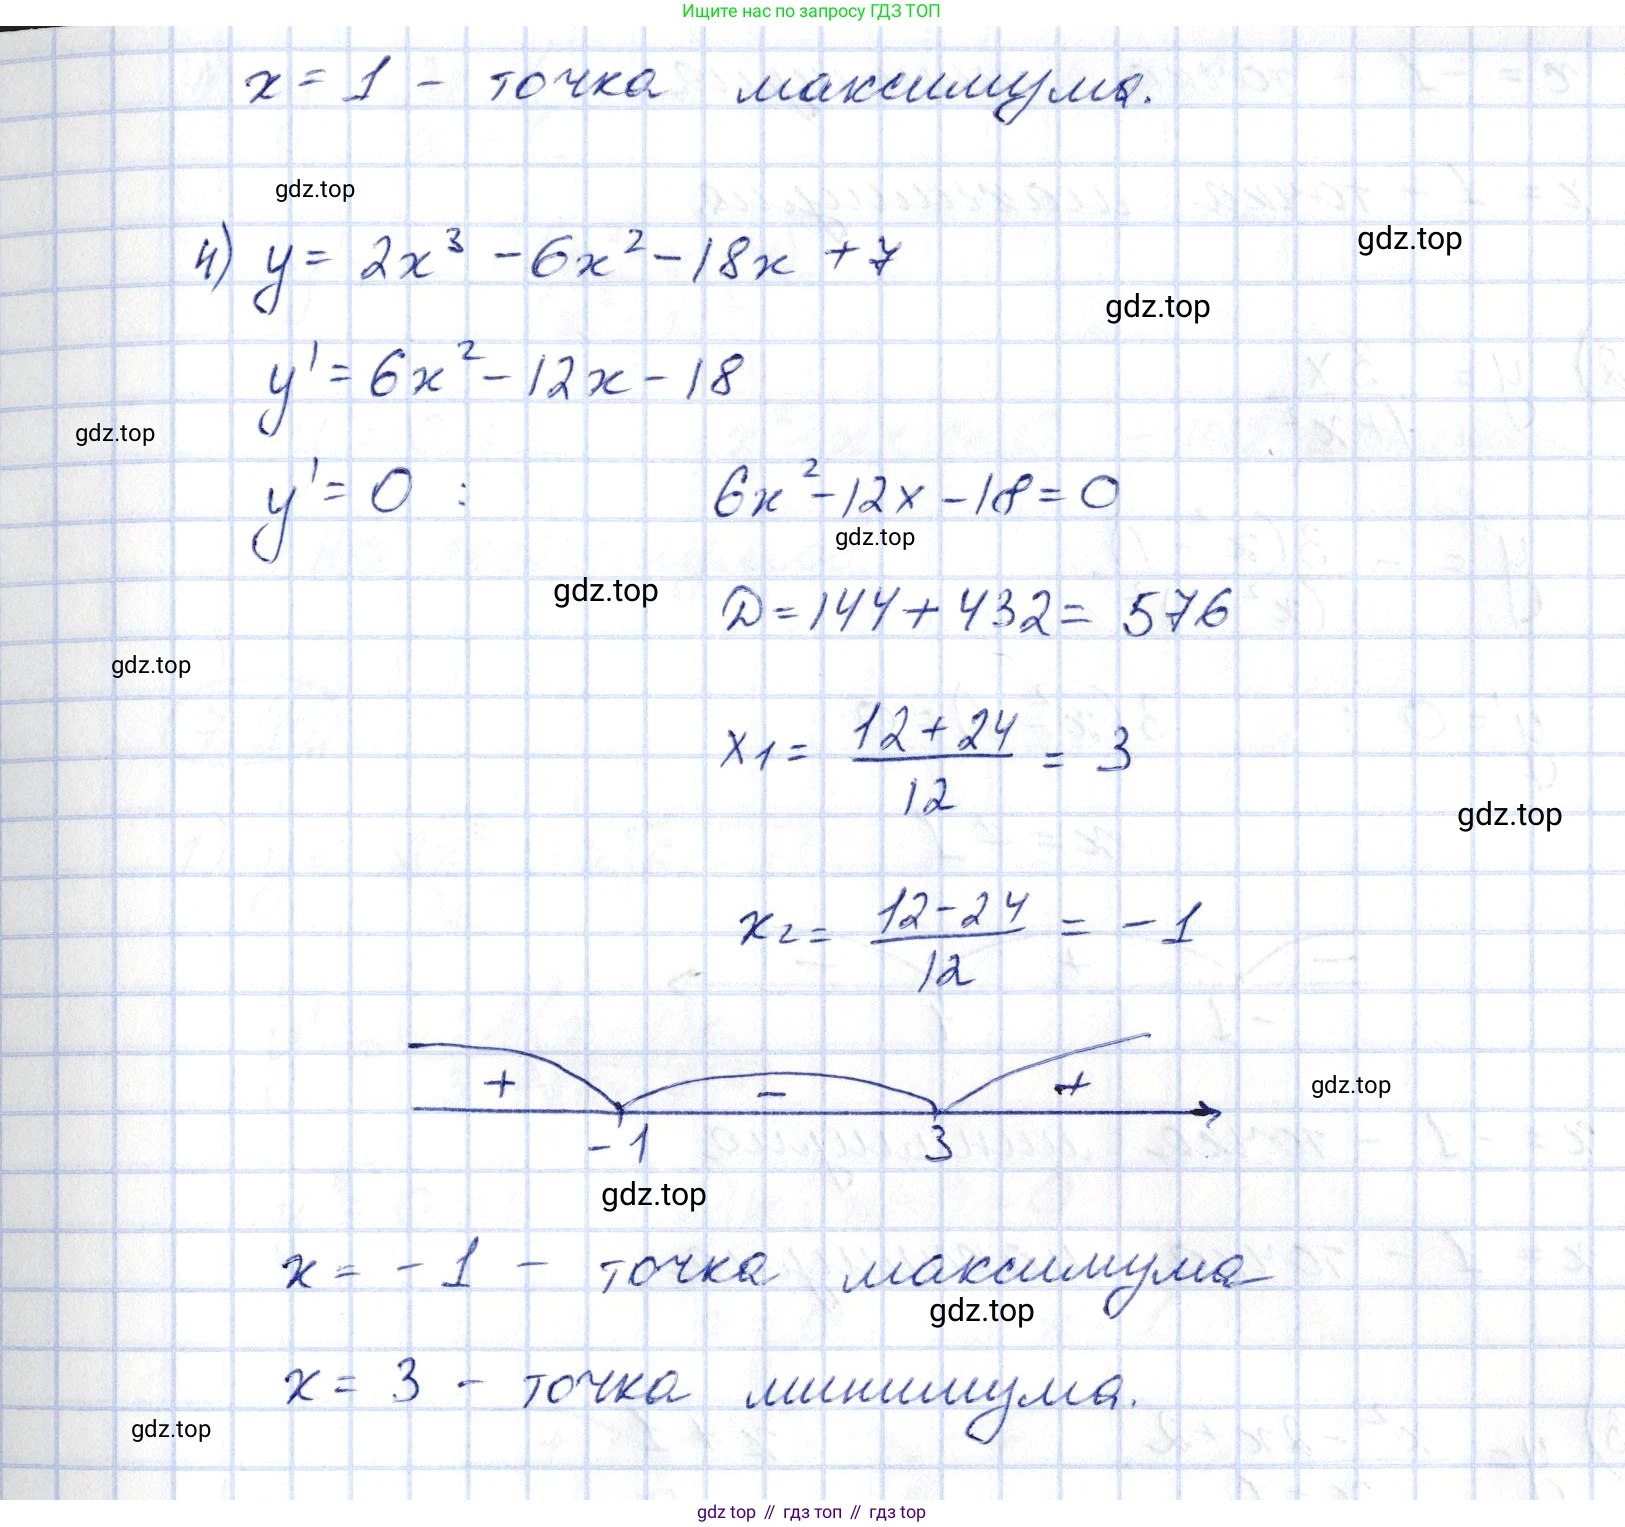 Ищите нас по запросу ГДЗ ТОП
x = 1 - точка максимума.
gdz.top
4) y = 2x³ - 6x² - 18x + 7
gdz.top
gdz.top
y' = 6x² - 12x - 18
gdz.top
y' = 0 : 6x² - 12x - 18 = 0
gdz.top
gdz.top
D = 144 + 432 = 576
gdz.top
x₁ = (12 + 24)/12 = 3
gdz.top
x₂ = (12 - 24)/12 = -1
+ - +
gdz.top
-1 3
gdz.top
x = -1 - точка максимума
gdz.top
x = 3 - точка минимума.
gdz.top
gdz top // гдз топ // gdz top